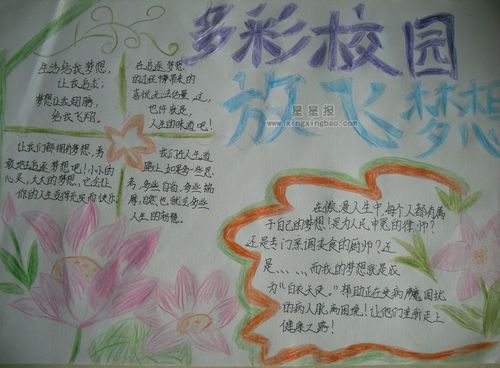 多彩校园
放飞梦想
星星报
www.ixingxingbao.com
生活给我梦想,
让我追求;
梦想让我翅膀,
给我飞翔。
在追逐梦想
的过程带来的
喜悦无法估量。这,
也许就是,
人生的味道吧!
让我们都拥有梦想,勇
敢地去追逐梦想吧!小小的
心灵,大大的梦想,它会让
你的人生变得充实而快乐。
我们在人生道
路上,如果多一些思
考,多些自省,多些揣
自然也就会多些
人生的智慧。
在浪漫人生中,每个人都有属
于自己的梦想!是为人民申冤的律师?
还是专门烹调美食的厨师?还
是、、、、、而我的梦想就是成
为“白衣天使。”帮助正在受病魔困扰
的病人脱离困境!让他们重新走上
健康之路!